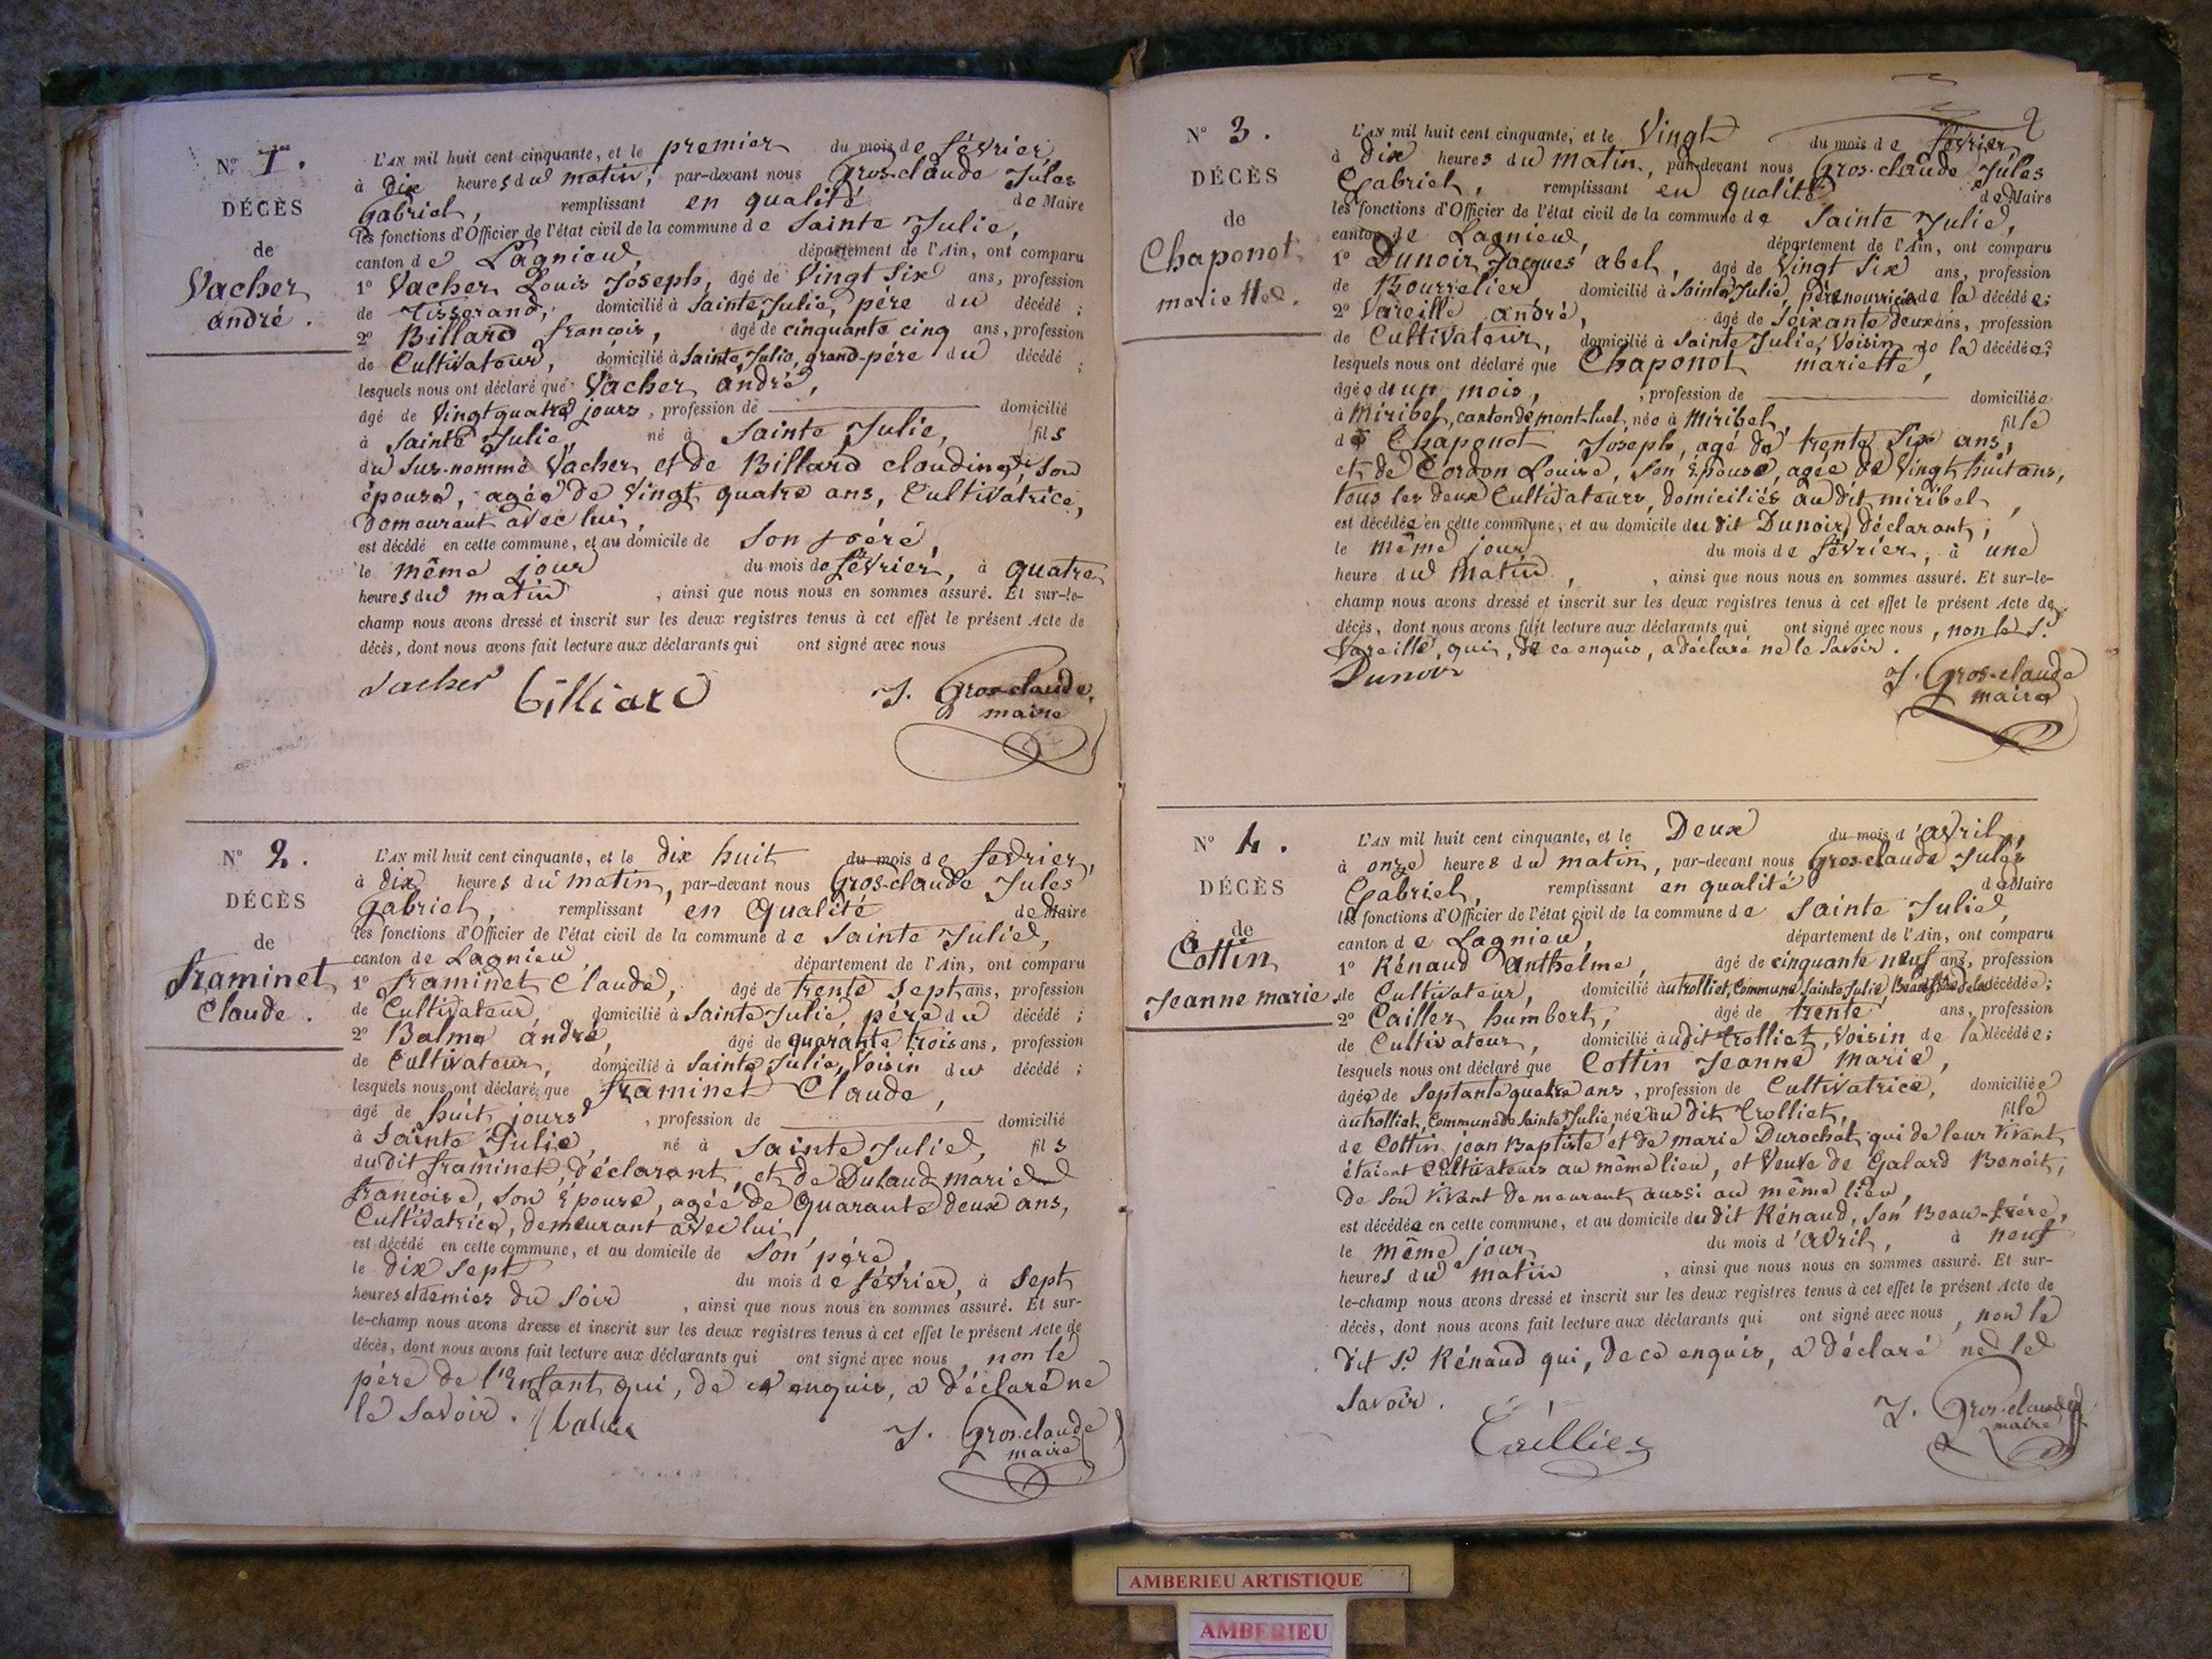 N° 1.
DÉCÈS
de
Vacher
andré.
L'AN mil huit cent cinquante, et le premier du mois de février,
à dix heures du matin, par-devant nous Gros-claude Jules
Gabriel, remplissant en qualité de Maire
les fonctions d'Officier de l'état civil de la commune de Sainte Julie,
canton de Lagnieu, département de l'Ain, ont comparu
1° Vacher Louis Joseph, âgé de Vingt Six ans, profession
de Tisserand, domicilié à Sainte Julie, père du décédé;
2° Billard françois, âgé de cinquante cinq ans, profession
de Cultivateur, domicilié à Sainte Julie, grand-père du décédé;
lesquels nous ont déclaré que Vacher andré,
âgé de Vingt quatre jours, profession de domicilié
à Sainte Julie, né à Sainte Julie, fils
du sus-nommé Vacher, et de Billard claudine, son
épouse, agée de Vingt quatre ans, Cultivatrice,
demeurant avec lui,
est décédé en cette commune, et au domicile de son père,
le même jour du mois de février, à quatre
heures du matin, ainsi que nous nous en sommes assuré. Et sur-le-
champ nous avons dressé et inscrit sur les deux registres tenus à cet effet le présent Acte de
décès, dont nous avons fait lecture aux déclarants qui ont signé avec nous
Vacher billiard J. Gros-claude,
maire
N° 2.
DÉCÈS
de
framinet
Claude.
L'AN mil huit cent cinquante, et le dix huit du mois de février,
à dix heures du matin, par-devant nous Gros-claude Jules
Gabriel, remplissant en qualité de Maire
les fonctions d'Officier de l'état civil de la commune de Sainte Julie,
canton de Lagnieu département de l'Ain, ont comparu
1° framinet Claude, âgé de trente sept ans, profession
de Cultivateur, domicilié à Sainte Julie, père du décédé;
2° Balme andré, âgé de quarante trois ans, profession
de Cultivateur, domicilié à Sainte Julie, Voisin du décédé;
lesquels nous ont déclaré que framinet Claude,
âgé de huit jours, profession de domicilié
à Sainte Julie, né à Sainte Julie, fils
du dit framinet, déclarant, et de Dutaud marie
françoise, son épouse, agée de quarante deux ans,
Cultivatrice, demeurant avec lui,
est décédé en cette commune, et au domicile de son père,
le dix sept du mois de février, à sept
heures et demies du soir, ainsi que nous nous en sommes assuré. Et sur-
le-champ nous avons dressé et inscrit sur les deux registres tenus à cet effet le présent Acte de
décès, dont nous avons fait lecture aux déclarants qui ont signé avec nous, non le
père de l'enfant qui, de ce enquis, a déclaré ne
le savoir. J. Gros-claude
maire
2
N° 3.
DÉCÈS
de
Chaponot
mariette.
L'AN mil huit cent cinquante, et le Vingt du mois de février,
à dix heures du matin, par-devant nous Gros-claude Jules
Gabriel, remplissant en qualité de Maire
les fonctions d'Officier de l'état civil de la commune de Sainte Julie,
canton de Lagnieu, département de l'Ain, ont comparu
1° Dunoir Jacques abel, âgé de Vingt Six ans, profession
de Bourrelier domicilié à Sainte Julie, père nourricier de la décédée;
2° Vareille andré, âgé de soixante deux ans, profession
de Cultivateur, domicilié à Sainte Julie, Voisin de la décédée;
lesquels nous ont déclaré que Chaponot mariette,
âgée d'un mois, profession de domiciliée
à Miribel, canton de mont-luel, née à Miribel, fille
de Chaponot Joseph, agé de trente six ans,
et de Cordon Louise, son épouse, agée de Vingt huit ans,
tous les deux Cultivateurs, domiciliés au dit miribel,
est décédée en cette commune, et au domicile du dit Dunoir, déclarant,
le même jour du mois de février, à une
heure du matin, ainsi que nous nous en sommes assuré. Et sur-le-
champ nous avons dressé et inscrit sur les deux registres tenus à cet effet le présent Acte de
décès, dont nous avons fait lecture aux déclarants qui ont signé avec nous, non le S.r
Vareille, qui, de ce enquis, a déclaré ne le savoir.
Dunoir J. Gros-claude
maire
N° 4.
DÉCÈS
de
Cottin
Jeanne marie.
L'AN mil huit cent cinquante, et le Deux du mois d'avril,
à onze heures du matin, par-devant nous Gros-claude Jules
Gabriel, remplissant en qualité de Maire
les fonctions d'Officier de l'état civil de la commune de Sainte Julie,
canton de Lagnieu, département de l'Ain, ont comparu
1° Rénaud Anthelme, âgé de cinquante neuf ans, profession
de Cultivateur, domicilié au trolliet, Commune Sainte Julie, Beau-frère de la décédée;
2° Caillier humbert, âgé de trente ans, profession
de Cultivateur, domicilié au dit trolliet, Voisin de la décédée;
lesquels nous ont déclaré que Cottin Jeanne Marie,
âgée de septante quatre ans, profession de Cultivatrice, domiciliée
au trolliet, Commune de Sainte Julie, née au dit trolliet, fille
de Cottin jean Baptiste et de marie Durochat qui de leur Vivant
étaient Cultivateurs au même lieu, et Veuve de Galard Benoit,
de son Vivant demeurant aussi au même lieu,
est décédée en cette commune, et au domicile du dit Rénaud, son Beau-frère,
le même jour du mois d'avril, à neuf
heures du matin, ainsi que nous nous en sommes assuré. Et sur-
le-champ nous avons dressé et inscrit sur les deux registres tenus à cet effet le présent Acte de
décès, dont nous avons fait lecture aux déclarants qui ont signé avec nous, non le
dit S.r Rénaud qui, de ce enquis, a déclaré ne le
savoir. J. Gros-claude
Caillier maire
AMBERIEU ARTISTIQUE
AMBERIEU